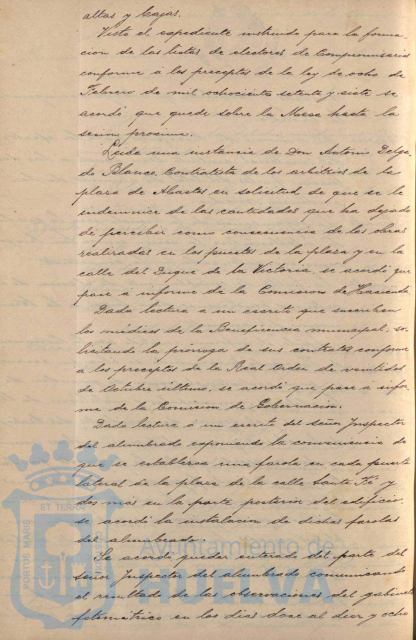 altas y bajas.
Visto el expediente instruido para la forma-
cion de las listas de electores de Compromisarios
conforme á los preceptos de la ley de ocho de
Febrero de mil ochocientos setenta y siete se
acordó que quede sobre la Mesa hasta la
sesion proxima.
Leida una instancia de Don Antonio Delga-
do Blanco, Contratista de los arbitrios de la
plaza de Abastos en solicitud de que se le
indemnice de las cantidades que ha dejado
de percibir como consecuencia de las obras
realizadas en los puestos de la plaza y en la
calle del Duque de la Victoria, se acordó que
pase á informe de la Comision de Hacienda
Dada lectura á un escrito que suscriben
los médicos de la Beneficencia municipal, so-
licitando la prórroga de sus contratos conforme
á los preceptos de la Real Orden de veintidos
de Octubre último, se acordó que pase á infor-
me de la Comision de Gobernacion.
Dada lectura á un escrito del Señor Inspector
del alumbrado exponiendo la conveniencia de
que se establezca una farola en cada puerta
lateral de la plaza de la calle Santa Fé y
dos más en la parte posterior del edificio,
se acordó la instalacion de dichas farolas
del alumbrado.
Se acordó quedar enterado del parte del
Señor Inspector del alumbrado comunicando
el resultado de las observaciones del gabinete
fotométrico en los dias doce al diez y ocho
PORTUS MARIS
ET TERRAE
Ayuntamiento de
HUELVA